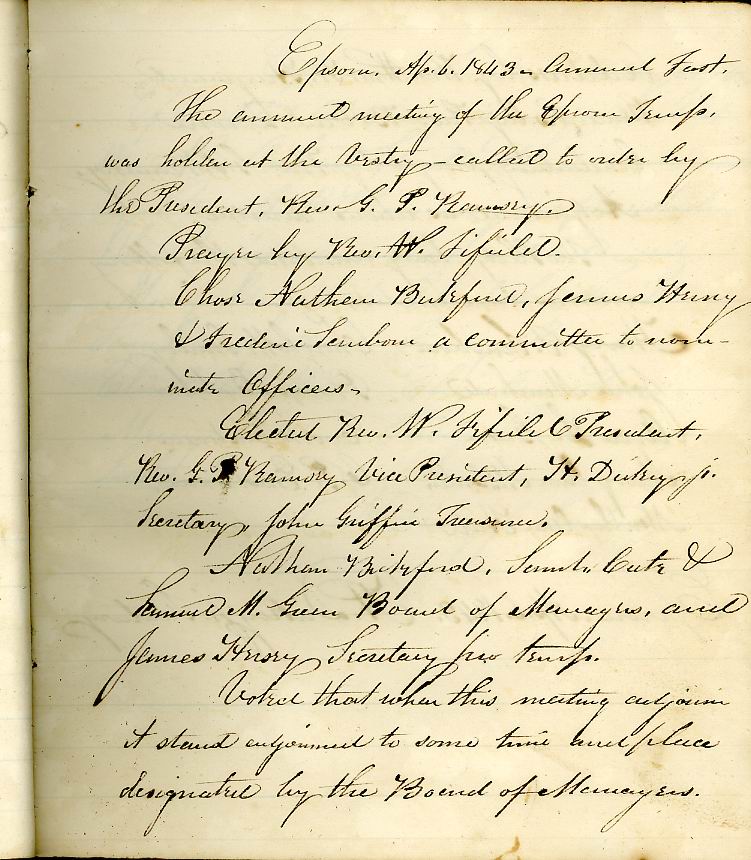 Epsom, Ap. 6. 1843 - Annual Fast.
The annual meeting of the Epsom Temp.
was holden at the Vestry - called to order by
the President, Rev. G. P. Ramsey.
Prayer by Rev. W. Fifield.
Chose Nathan Bickford, James Hersey
& Frederic Sanborn a committee to nom-
inate Officers -
Elected Rev. W. Fifield President,
Rev. G. P. Ramsey Vice President, H. Dickey jr.
Secretary, John Griffin Treasurer.
Nathan Bickford, Saml. Cate &
Samuel M. Green Board of Managers, and
James Hersey Secretary pro temp.
Voted that when this meeting adjourn
it stand adjourned to some time and place
designated by the Board of Managers.